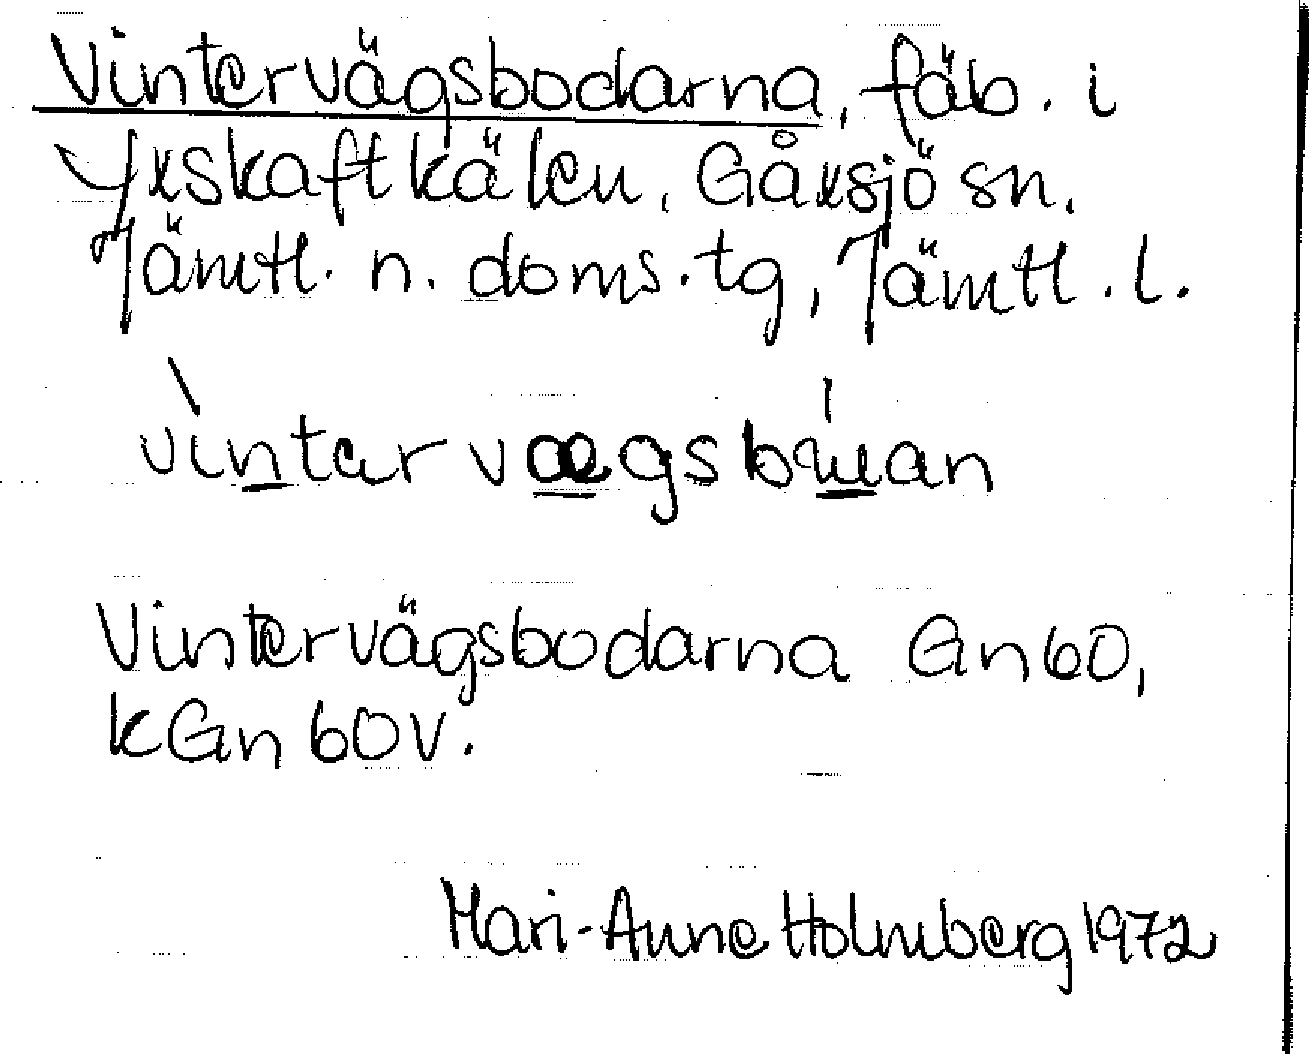 Vintervägsbodarna, fäb. i
Yxskaftkälen, Gåxsjö sn.
Jämtl. n. doms.tg, Jämtl. l.
Vintervägsbodarna Gn 60,
kGn 60 v.
Mari-Anne Holmberg 1972